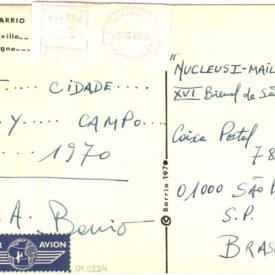 ARRIO
ville
gne
CIDADE
Y CAMPO
1970
A. Barrio
AVION
01.0224
© Barrio 1970
"NUCLEUS I-MAIL
XVI Bienal de Sã
Caixa Postal
78
01000 SÃO P
S.P.
BRAS